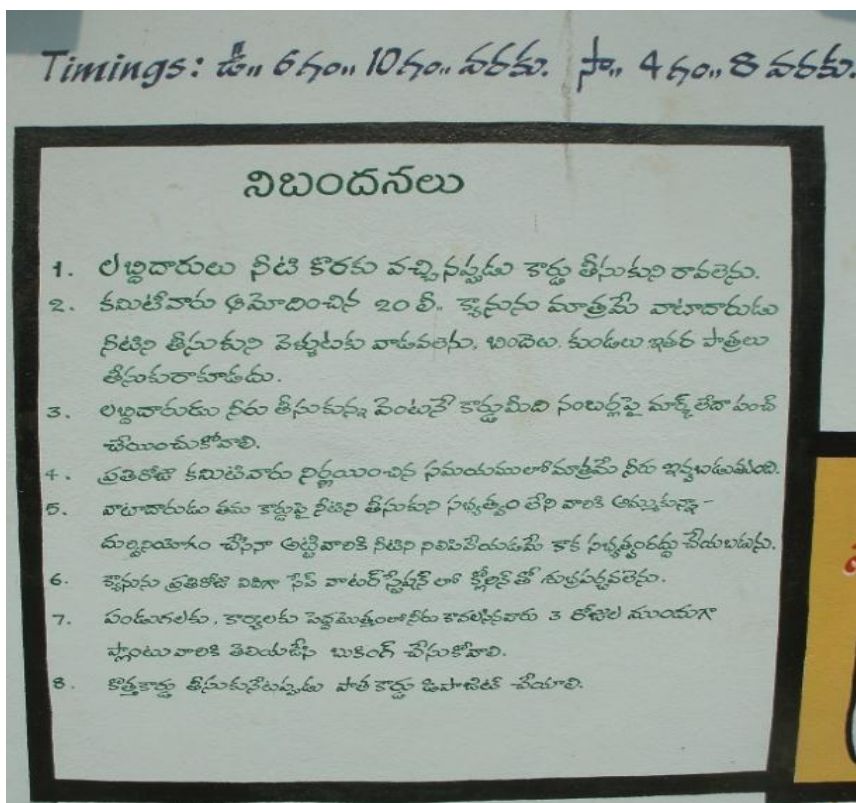 Timings: ఉ॥ 6 గం॥ 10 గం॥ వరకు. సా॥ 4 గం॥ 8 వరకు.
నిబందనలు
1. లబ్ధిదారులు నీటి కొరకు వచ్చినప్పడు కార్డు తీసుకుని రావలెను.
2. కమిటీవారు ఆమోదించిన 20 లీ॥ క్యానును మాత్రమే వాటాదారుడు
నీటిని తీసుకుని వెళ్ళుటకు వాడవలెను, బిందెలు. కుండలు ఇతర పాత్రలు
తీసుకురాకూడదు.
3. లబ్ధిదారుడు నీరు తీసుకున్న వెంటనే కార్డుమీది నంబర్లపై మార్క్ లేదా పంచ్
చేయించుకోవాలి.
4. ప్రతిరోజూ కమిటివారు నిర్ణయించిన సమయములోమాత్రమే నీరు ఇవ్వబడుతుంది.
5. వాటాదారుడు తమ కార్డుపై నీటిని తీసుకుని సభ్యత్వం లేని వారికి అమ్ముకున్నా-
దుర్వినియోగం చేసినా అట్టివారికి నీటిని నిలిపివేయడమే కాక సభ్యత్వంరద్దు చేయబడును.
6. క్యానును ప్రతిరోజూ విదిగా సేఫ్ వాటర్ స్టేషన్ లో క్లోరిన్ తో శుభ్రపర్చవలెను.
7. పండుగలకు, కార్యాలకు పెద్దమొత్తంలోనీరు కావలసినవారు 3 రోజుల ముందుగా
ప్లాంటు వారికి తెలియజేసి బుకింగ్ చేసుకోవాలి.
8. కొత్తకార్డు తీసుకునేటప్పుడు పాత కార్డు డిపాజిట్ చేయాలి.